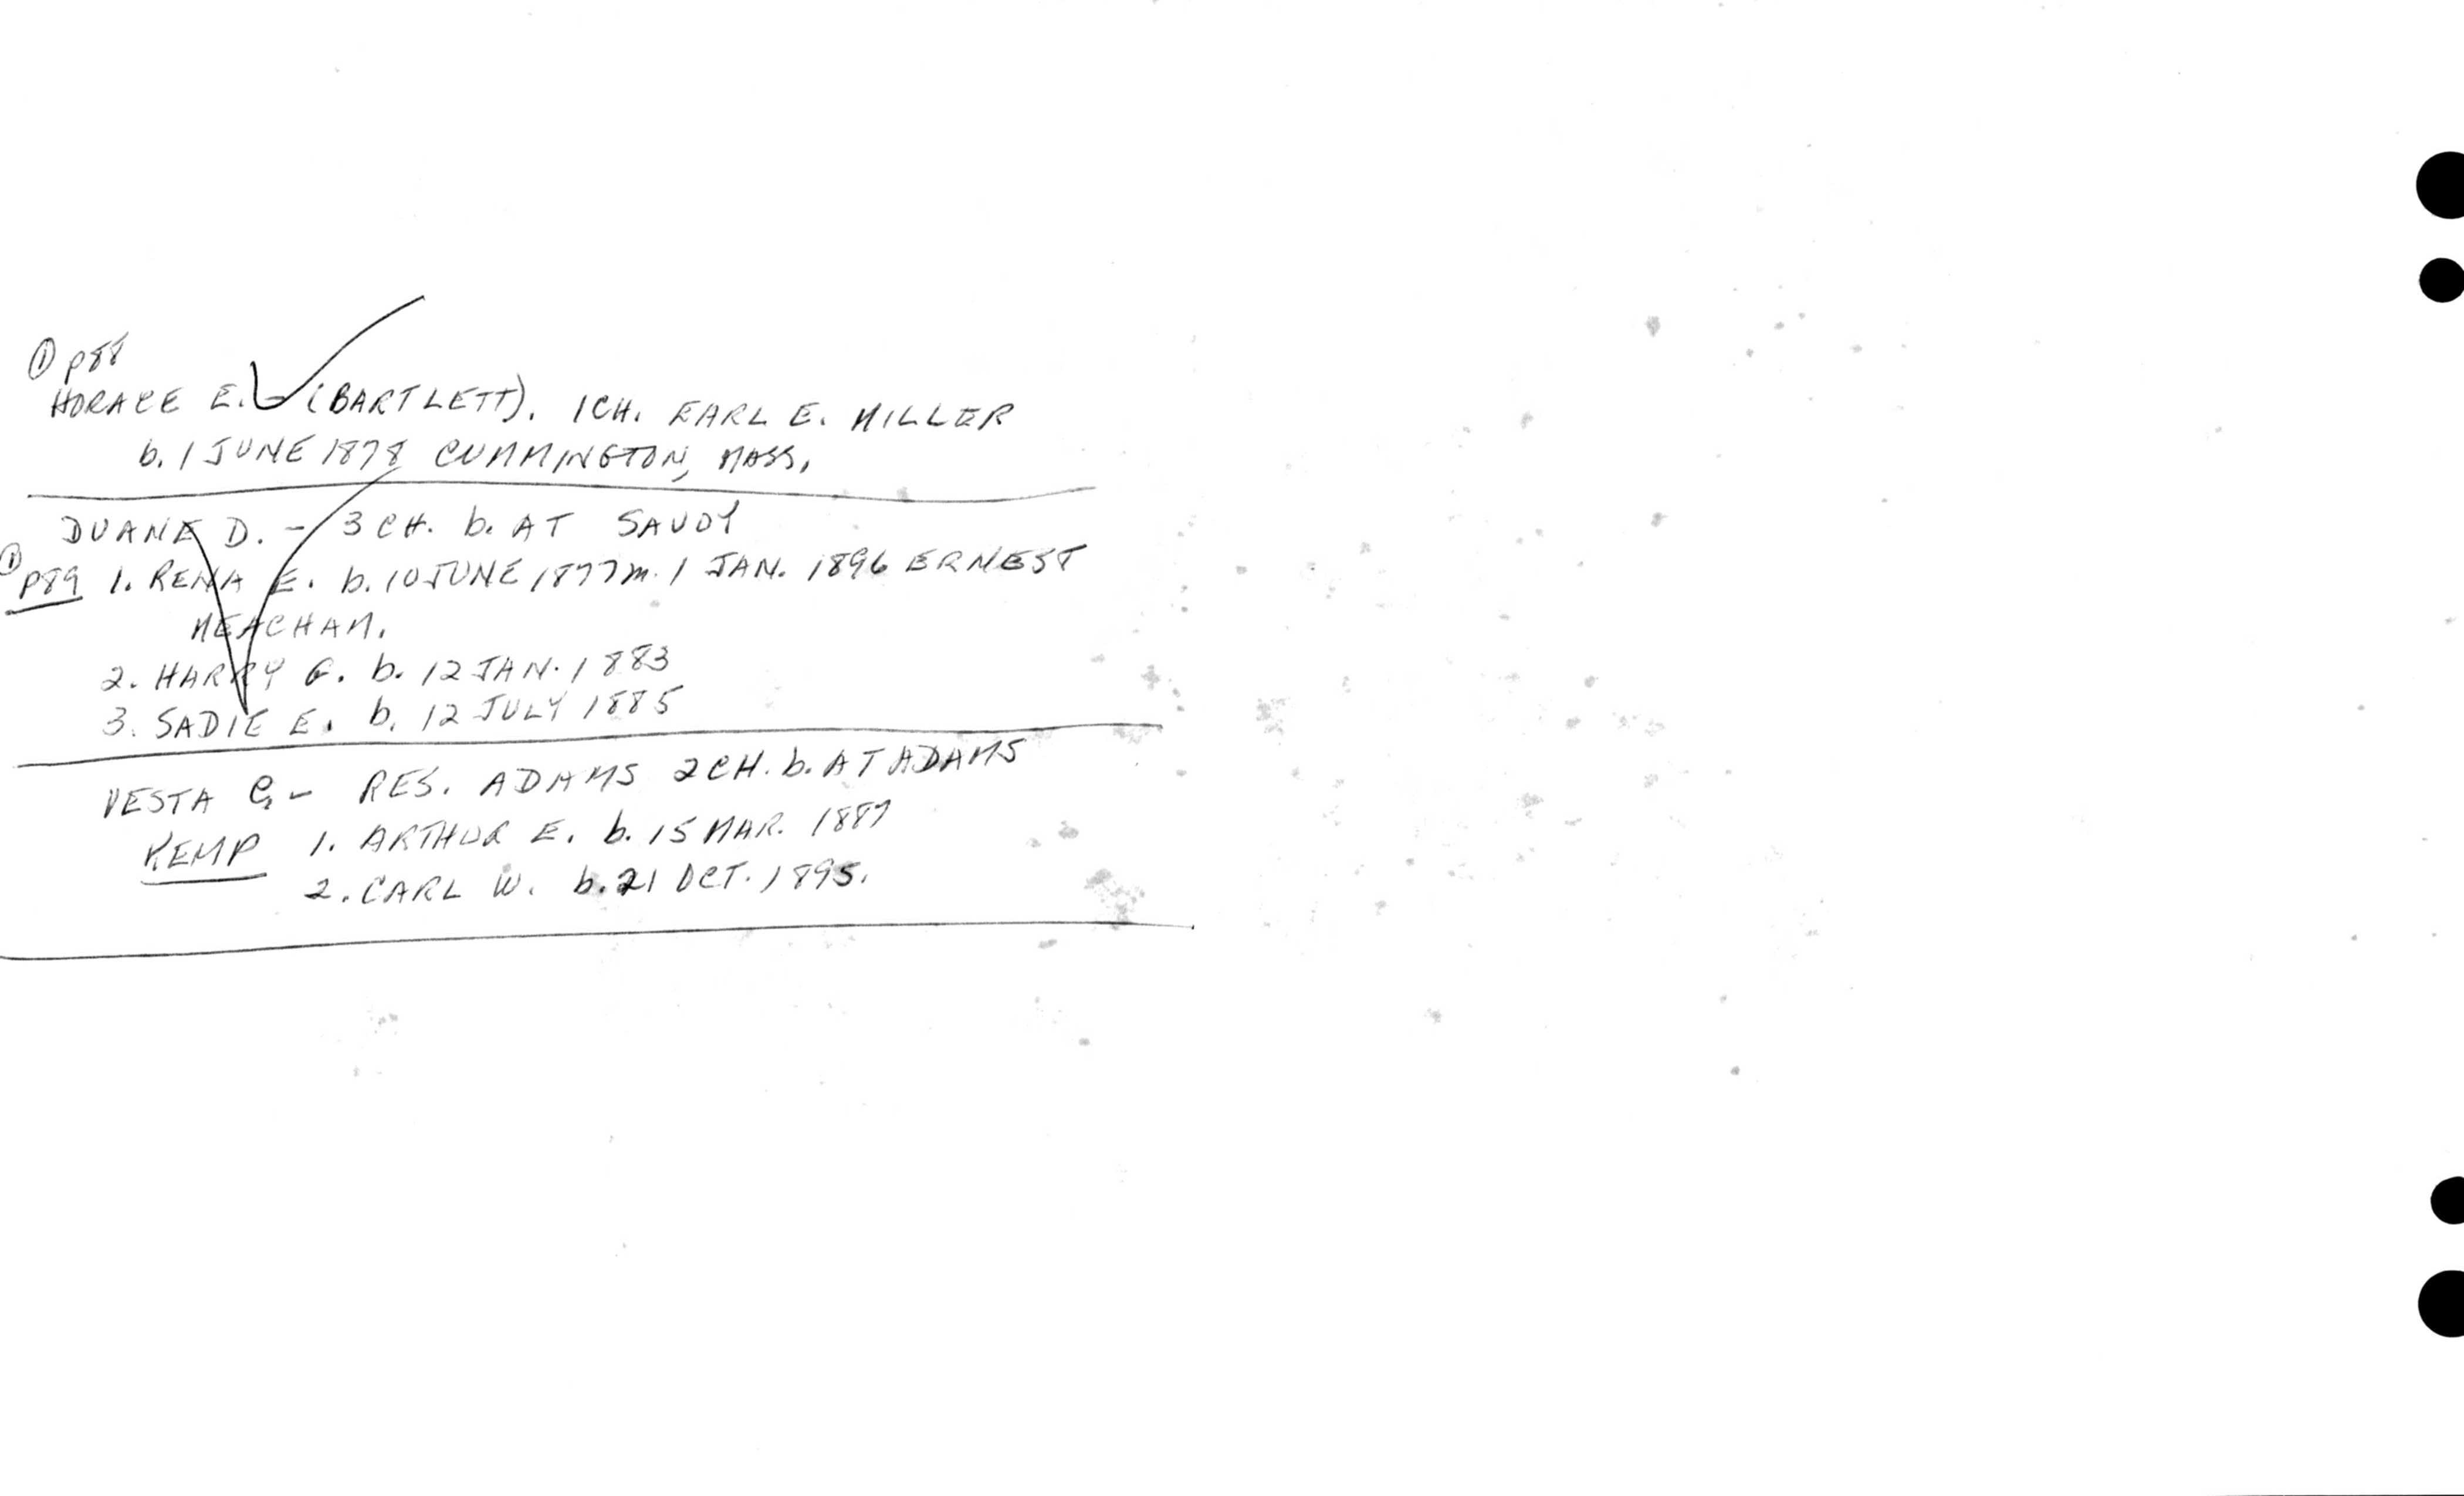 ① p88
HORACE E. - (BARTLETT). 1CH. EARL E. MILLER
b. 1 JUNE 1878 CUMMINGTON, MASS.
DUANE D. - 3 CH. b. AT SAVOY
① p89 1. RENA E. b. 10 JUNE 1877 m. 1 JAN. 1896 ERNEST
MEACHAM.
2. HARRY G. b. 12 JAN. 1883
3. SADIE E. b. 12 JULY 1885
VESTA C. - RES. ADAMS 2 CH. b. AT ADAMS
KEMP 1. ARTHUR E. b. 15 MAR. 1887
2. CARL W. b. 21 OCT. 1895.